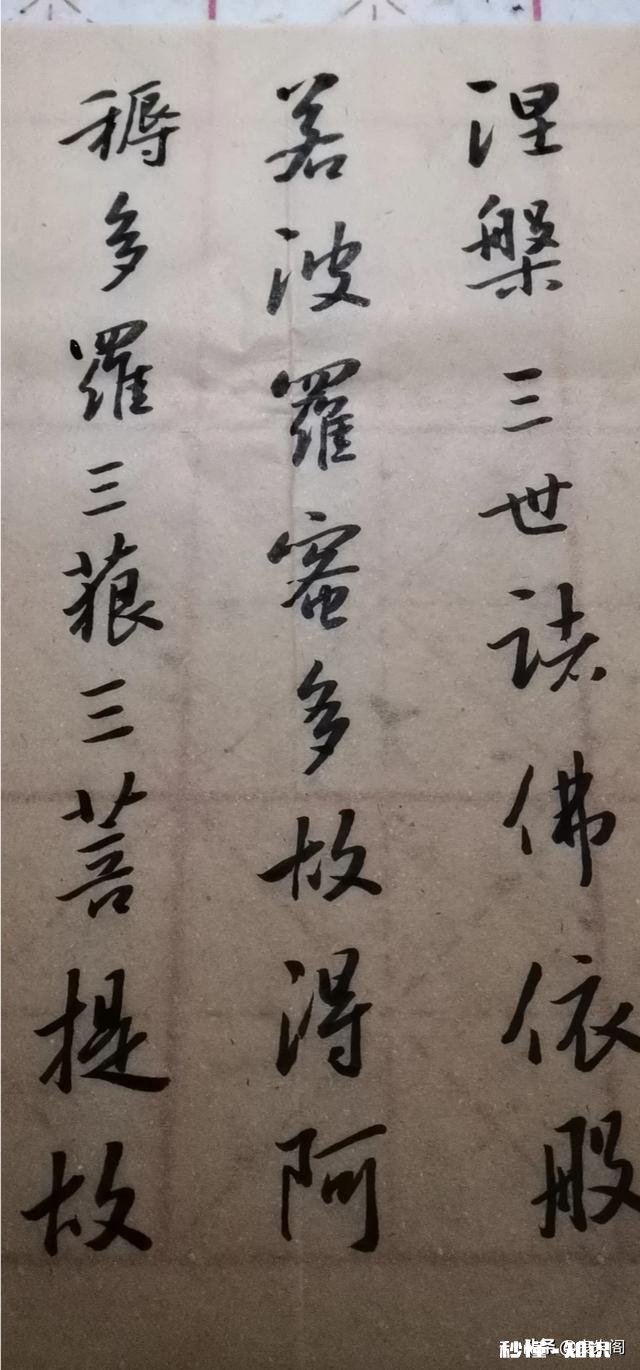 涅槃三世諸佛依般
若波羅蜜多故得阿
耨多羅三藐三菩提故
秒懂·知识